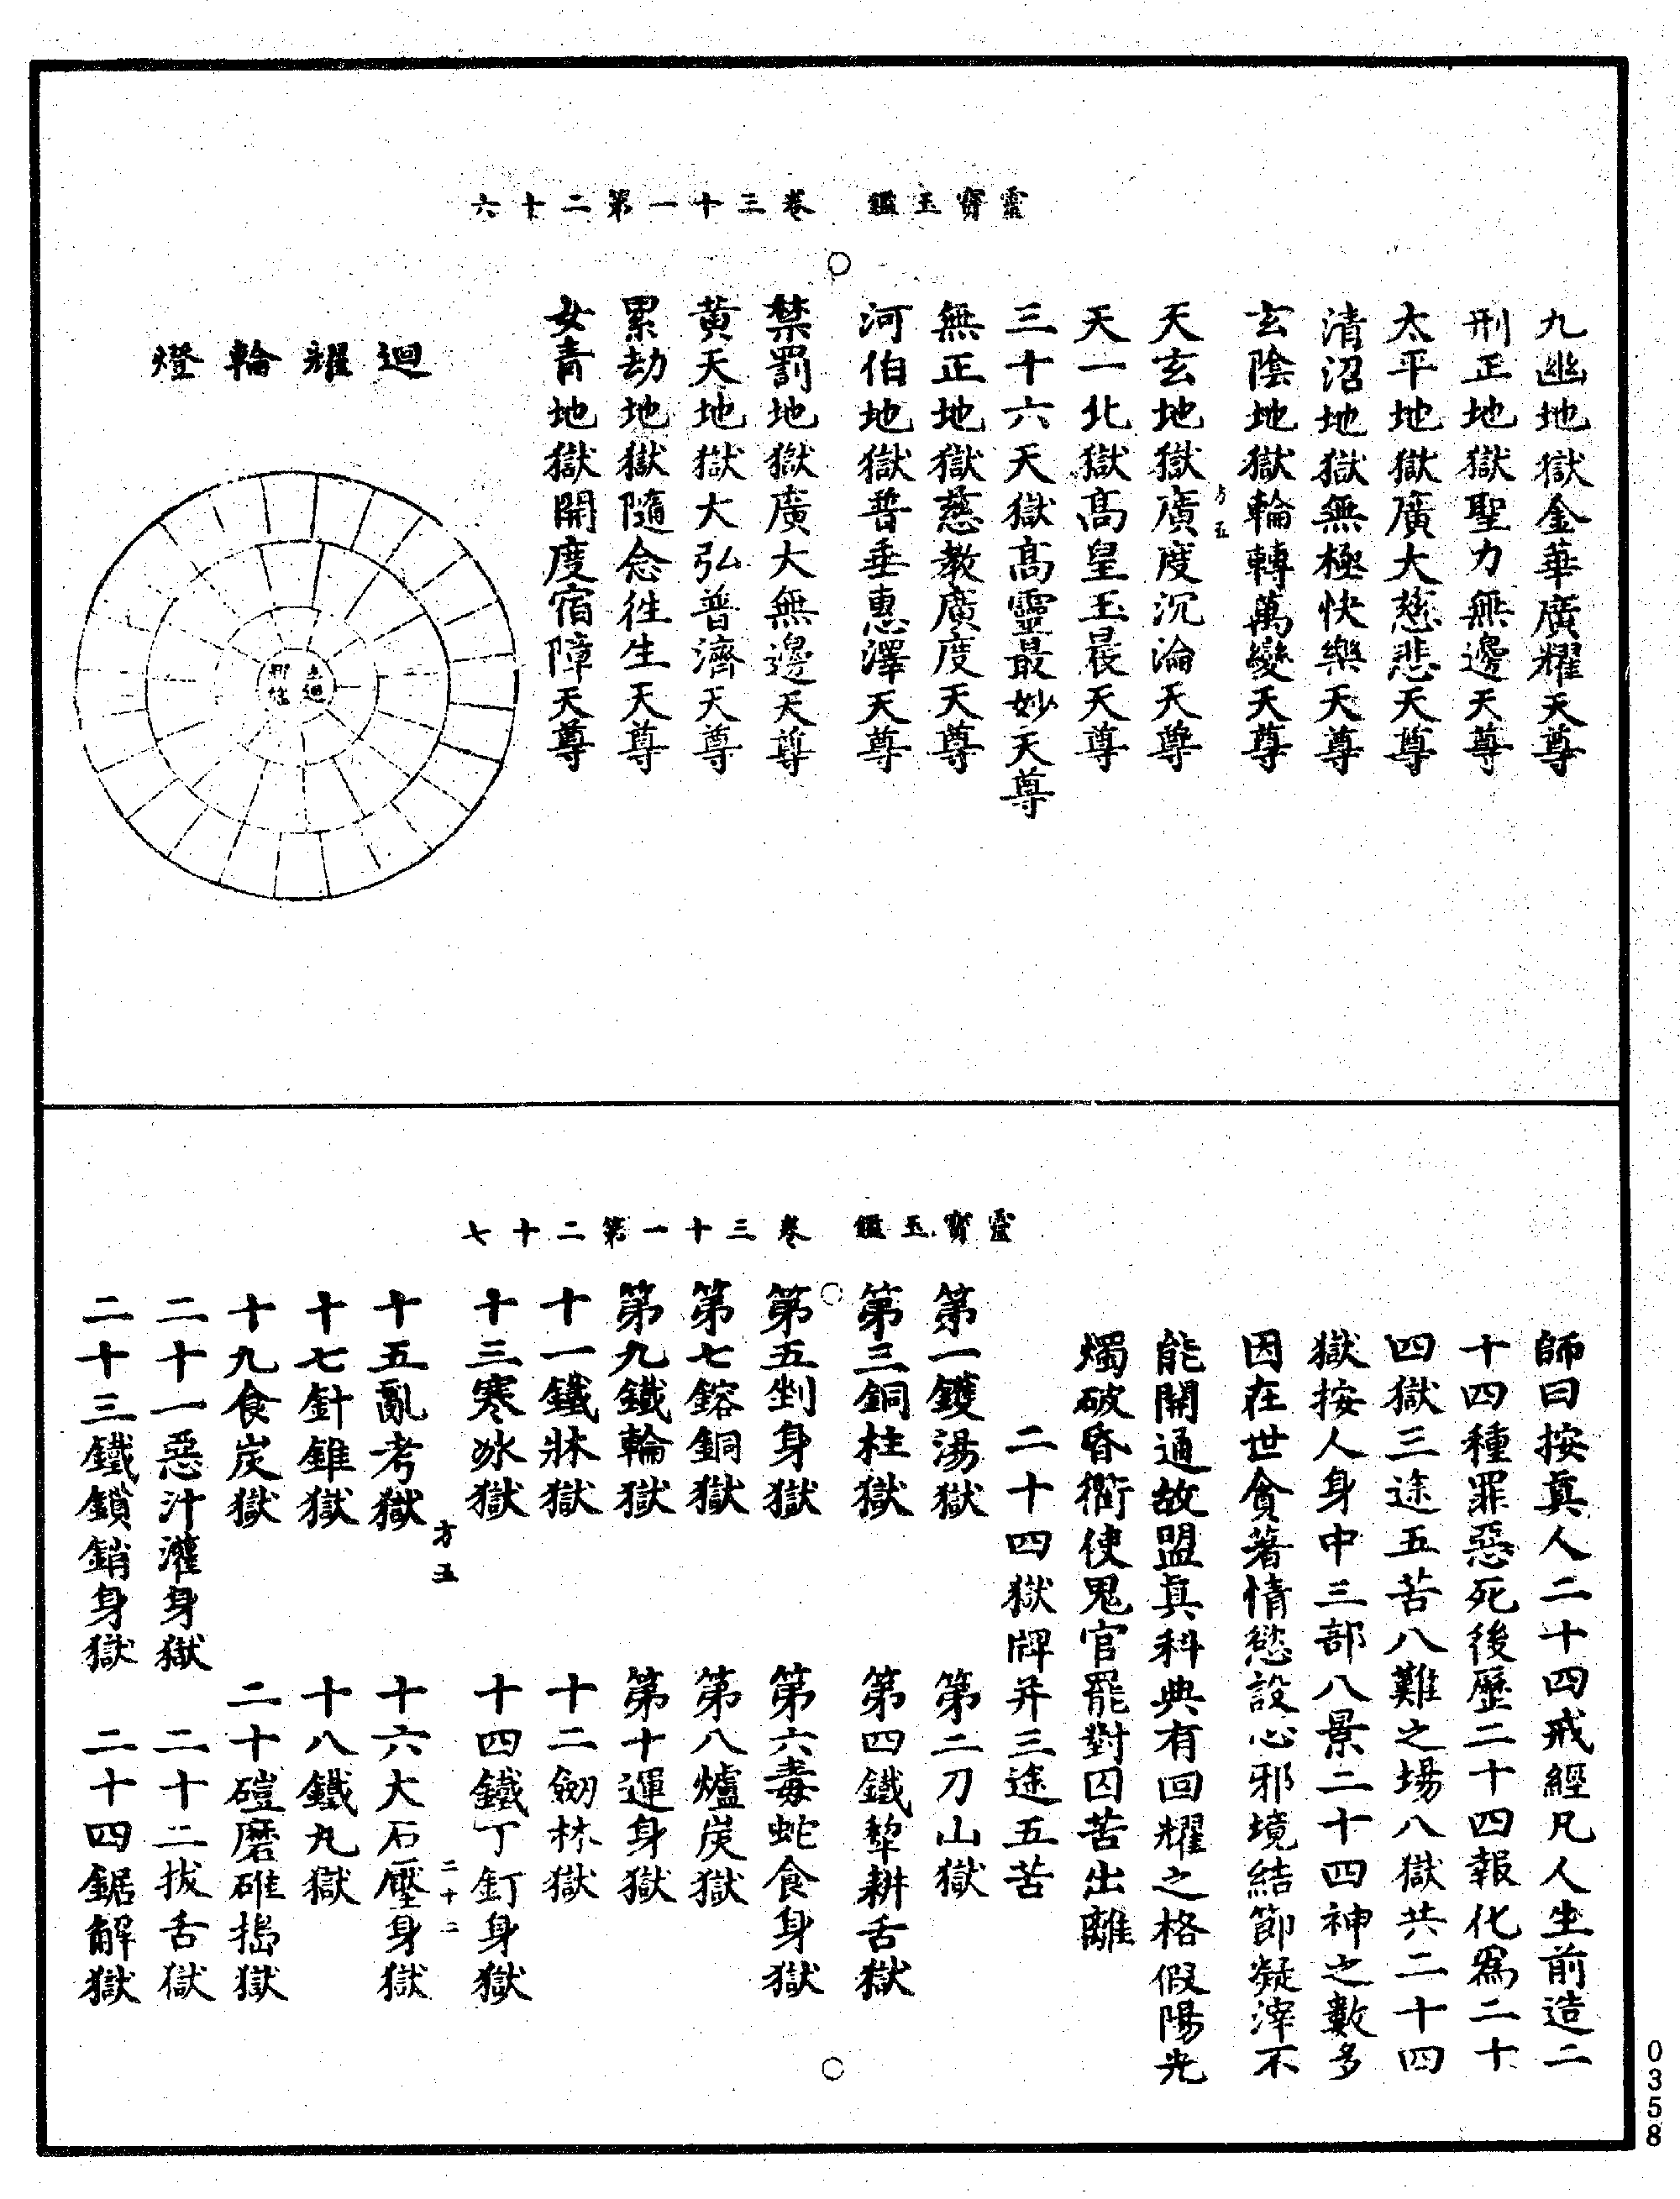 靈寶玉鑑　卷三十一第二十六
九幽地獄金華廣耀天尊
刑正地獄聖力無邊天尊
太平地獄廣大慈悲天尊
清沼地獄無極快樂天尊
玄陰地獄輪轉萬變天尊
方五
天玄地獄廣度沉淪天尊
天一北獄高皇玉晨天尊
三十六天獄高靈最妙天尊
無正地獄慈教廣度天尊
河伯地獄普垂惠澤天尊
禁罰地獄廣大無邊天尊
黃天地獄大弘普濟天尊
累劫地獄隨念往生天尊
女青地獄開度宿障天尊
迴耀輪燈
靈寶玉鑑　卷三十一第二十七
師曰按真人二十四戒經凡人生前造二
十四種罪惡死後歷二十四報化為二十
四獄三途五苦八難之場八獄共二十四
獄按人身中三部八景二十四神之數多
因在世貪著情慾設心邪境結節凝滓不
能開通故盟真科典有回耀之格假陽光
燭破昏衢使鬼官罷對囚苦出離
二十四獄牌并三途五苦
第一鑊湯獄　第二刀山獄
第三銅柱獄　第四鐵犂耕舌獄
第五剉身獄　第六毒蛇食身獄
第七鎔銅獄　第八爐炭獄
第九鐵輪獄　第十運身獄
十一鐵牀獄　十二劒林獄
十三寒冰獄　十四鐵丁釘身獄
方五　二十二
十五亂考獄　十六大石壓身獄
十七針錐獄　十八鐵丸獄
十九食炭獄　二十磑磨碓搗獄
二十一惡汁灌身獄　二十二拔舌獄
二十三鐵鎖銷身獄　二十四鋸解獄
0358